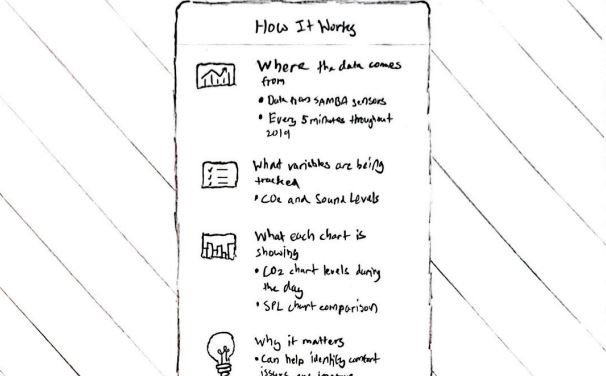 How It Works
Where the data comes
from
• Data from SAMBA sensors
• Every 5 minutes throughout
2019
What variables are being
tracked
• CO2 and Sound Levels
What each chart is
showing
• CO2 chart levels during
the day
• SPL chart comparison
Why it matters
• Can help identify comfort
issues and improve